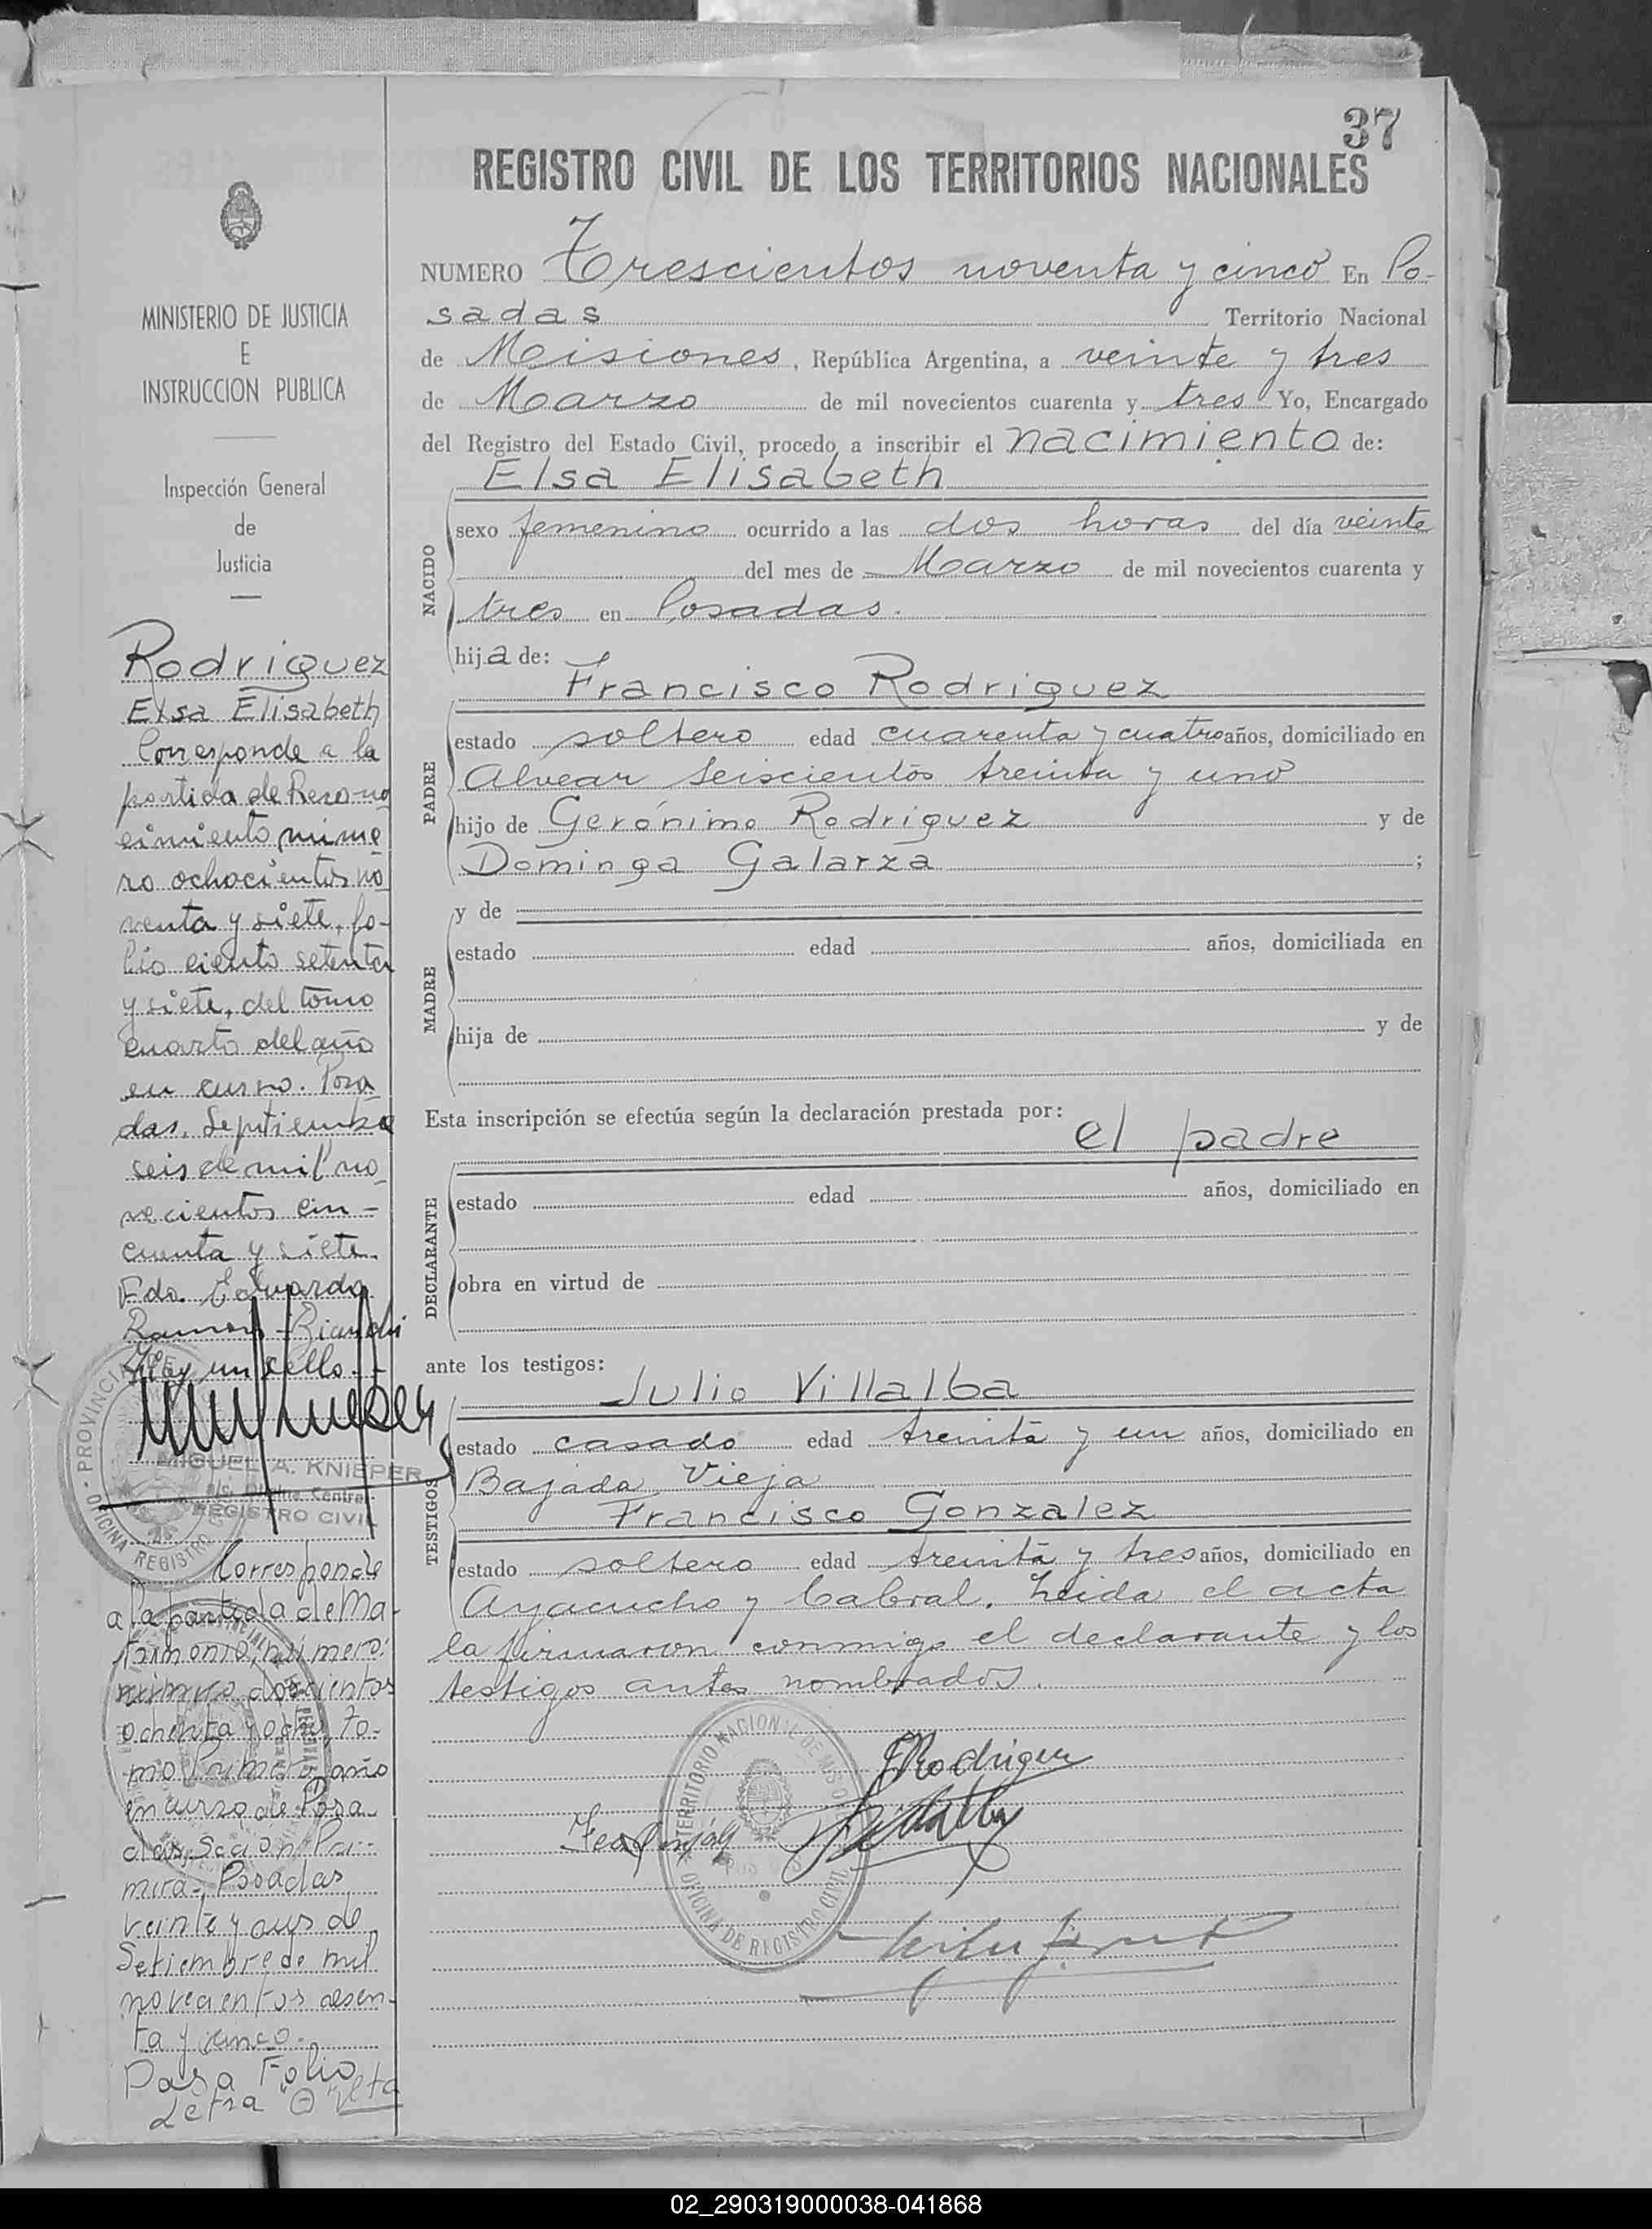 37
REGISTRO CIVIL DE LOS TERRITORIOS NACIONALES
NUMERO Trescientos noventa y cinco En Po-
sadas Territorio Nacional
de Misiones, República Argentina, a veinte y tres
de Marzo de mil novecientos cuarenta y tres Yo, Encargado
del Registro del Estado Civil, procedo a inscribir el nacimiento de:
Elsa Elisabeth
NACIDO
sexo femenino ocurrido a las dos horas del día veinte
del mes de Marzo de mil novecientos cuarenta y
tres en Posadas.
hija de:
Francisco Rodriguez
PADRE
estado soltero edad cuarenta y cuatro años, domiciliado en
Alvear seiscientos treinta y uno
hijo de Gerónimo Rodriguez y de
Dominga Galarza ;
MADRE
y de
estado edad años, domiciliada en
hija de y de
Esta inscripción se efectúa según la declaración prestada por:
el padre
DECLARANTE
estado edad años, domiciliado en
obra en virtud de
ante los testigos:
Julio Villalba
TESTIGOS
estado casado edad treinta y un años, domiciliado en
Bajada Vieja
Francisco Gonzalez
estado soltero edad treinta y tres años, domiciliado en
Ayacucho y Cabral. Leida el acta
la firmaron conmigo el declarante y los
testigos antes nombrados.
FRodriguez
TERRITORIO NACIONAL DE MISIONES
OFICINA DE REGISTRO CIVIL
MINISTERIO DE JUSTICIA
E
INSTRUCCION PUBLICA
Inspección General
de
Justicia
Rodriguez
Elsa Elisabeth
Corresponde a la
partida de Recono
cimiento núme
ro ochocientos no
venta y siete, fo-
lio ciento setenta
y siete, del tomo
cuarto del año
en curso. Posa
das, Septiembre
seis de mil no
vecientos cin-
cuenta y siete.
Fdo. Eduardo
Ramón Bianchi
Hay un sello.-
MIGUEL A. KNIEPER
Oficina Central
REGISTRO CIVIL
PROVINCIA DE
OFICINA REGISTRO
Corresponde
a la partida de Ma-
trimonio, número:
número doscientos
ochenta y ocho, To-
mo Primero año
en curso de Posa
das, Sección Pri-
mera.- Posadas,
veinte y de
Setiembre de mil
novecientos sesen-
ta y cinco.-
Pasa Folio
Letra "A" vlta
02_290319000038-041868